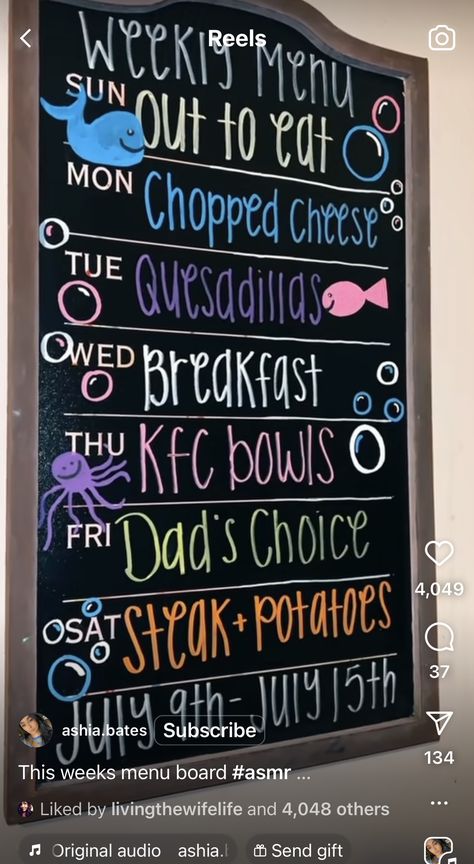 Reels
Weekly Menu
SUN Out to eat
MON Chopped Cheese
TUE Quesadillas
WED Breakfast
THU KFC bowls
FRI Dad's Choice
SAT Steak + Potatoes
July 9th - July 15th
4,049
37
134
ashia.bates Subscribe
This weeks menu board #asmr ...
Liked by livingthewifelife and 4,048 others
Original audio ashia.b Send gift